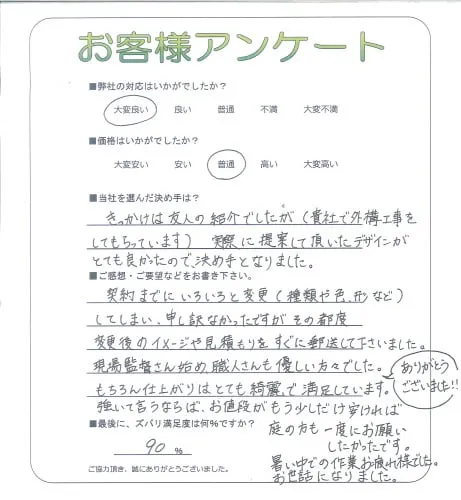 お客様アンケート
■弊社の対応はいかがでしたか?
大変良い 良い 普通 不満 大変不満
■価格はいかがでしたか?
大変安い 安い 普通 高い 大変高い
■当社を選んだ決め手は?
きっかけは友人の紹介でしたが(貴社で外構工事を
してもらっています) 実際に提案して頂いたデザインが
とても良かったので、決め手となりました。
■ご感想・ご要望などをお書き下さい。
契約までにいろいろと変更(種類や色、形など)
してしまい、申し訳なかったですがその都度
変更後のイメージや見積もりをすぐに郵送して下さいました。
現場監督さん始め、職人さんも優しい方々でした。
ありがとう
ございました!!
もちろん仕上がりはとても綺麗で満足しています。
強いて言うならば、お値段がもう少しだけ安ければ
庭の方も一度にお願い
したかったです。
暑い中での作業お疲れ様でした。
お世話になりました。
■最後に、ズバリ満足度は何%ですか?
90 %
ご協力頂き、誠にありがとうございました。